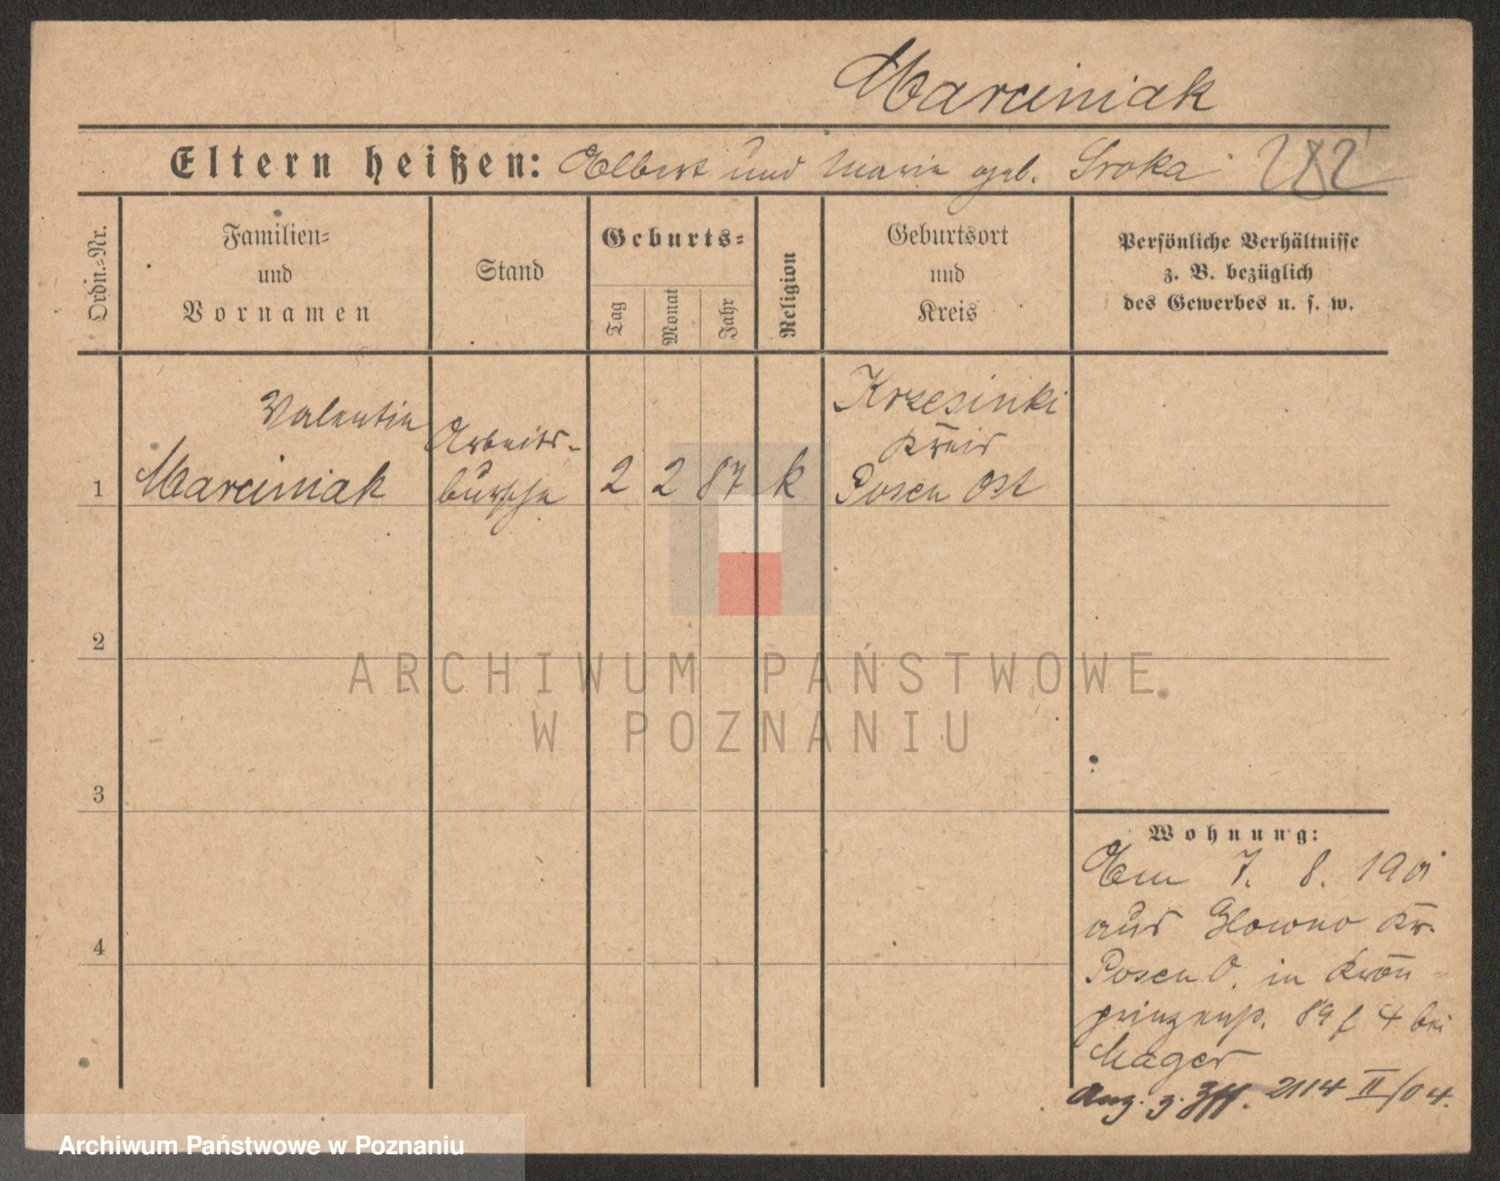 Marciniak
Eltern heißen: Albert und Maria geb. Sroka 282
Ordn.-Nr.
Familien-
und
Vornamen
Stand
Geburts-
Tag
Monat
Jahr
Religion
Geburtsort
und
Kreis
Persönliche Verhältnisse
z. B. bezüglich
des Gewerbes u. s. w.
1
Valentin
Marciniak
Arbeits-
bursche
2
2
87
k
Krzesinki
Kreis
Posen Ost
2
ARCHIWUM PAŃSTWOWE
W POZNANIU
3
4
Wohnung:
Am 7. 8. 1901
aus Glowno Kr.
Posen O. in Kron-
prinzenst. 89 f 4 bei
Mager
Ang. z. 2114 II/04.
Archiwum Państwowe w Poznaniu